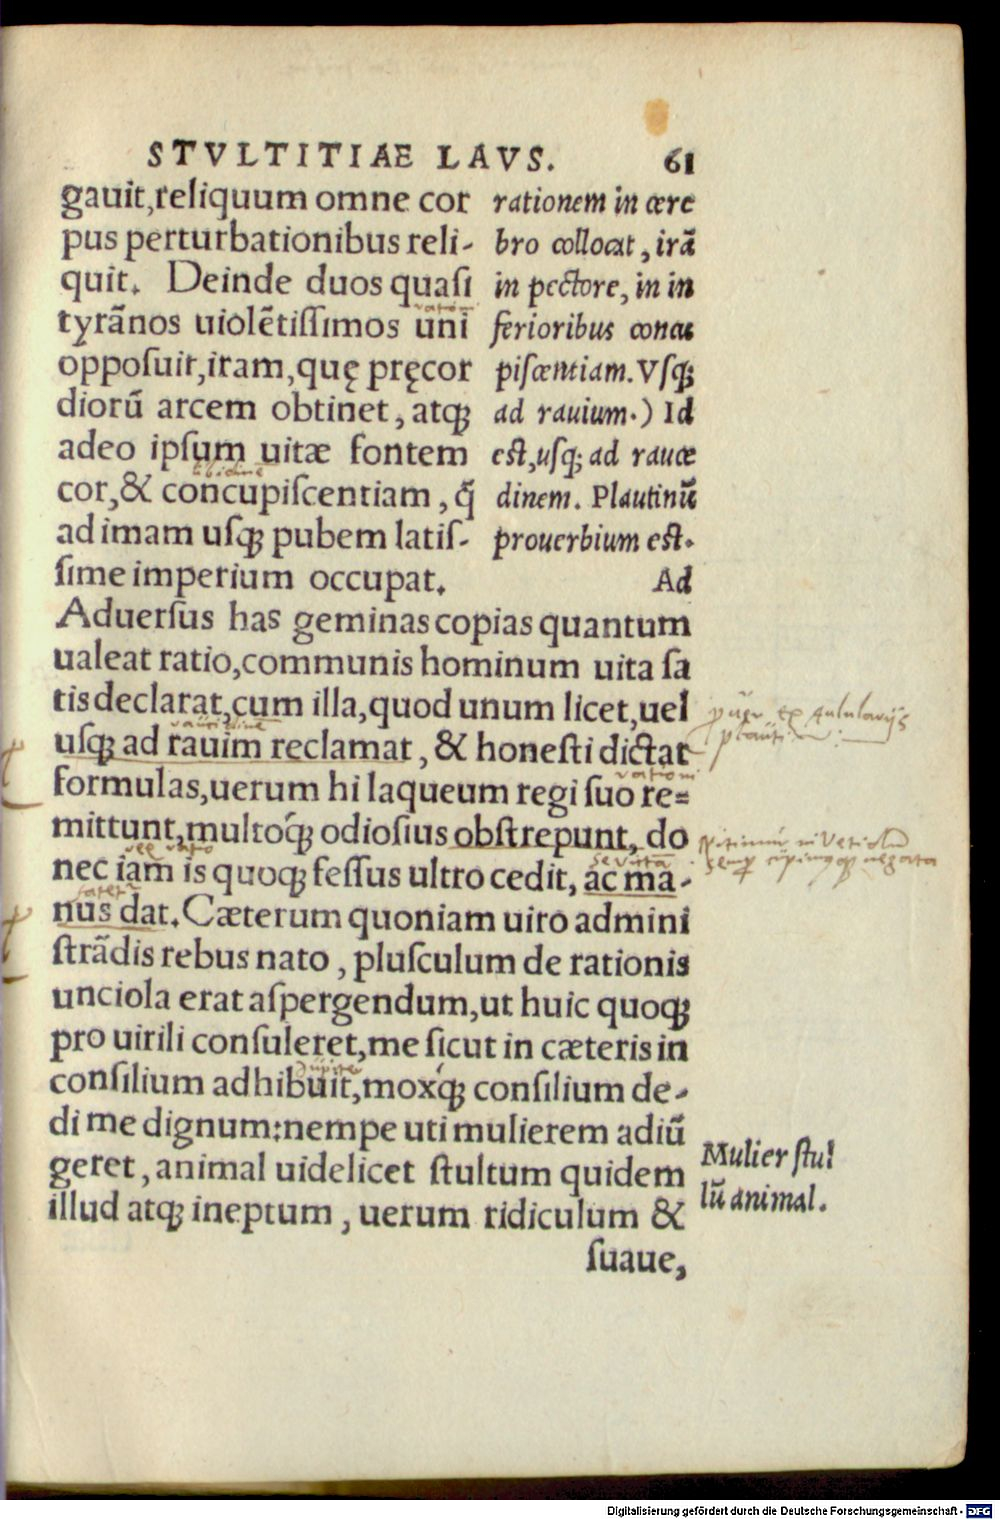 STVLTITIAE LAVS. 61
gauit,reliquum omne cor
pus perturbationibus reli-
quit. Deinde duos quasi
tyrãnos uiolẽtissimos uni
opposuit,iram,quę pręcor
diorũ arcem obtinet, atq;
adeo ipsum uitæ fontem
cor,& concupiscentiam, q̃
ad imam usq; pubem latis-
sime imperium occupat.
rationem in cere
bro collocat, irã
in pectore, in in
ferioribus concu
piscentiam. Vsq;
ad rauium.) Id
est,usq; ad rauce
dinem. Plautinũ
prouerbium est.
Ad
Aduersus has geminas copias quantum
ualeat ratio,communis hominum uita sa
tis declarat,cum illa,quod unum licet,uel
usq; ad rauim reclamat, & honesti dictat
formulas,uerum hi laqueum regi suo re=
mittunt,multoq́; odiosius obstrepunt, do
nec iam is quoq; fessus ultro cedit, ac ma-
nus dat. Cæterum quoniam uiro admini
strãdis rebus nato, plusculum de rationis
unciola erat aspergendum,ut huic quoq;
pro uirili consuleret,me sicut in cæteris in
consilium adhibuit,moxq́; consilium de-
di me dignum:nempe uti mulierem adiũ
geret, animal uidelicet stultum quidem
illud atq; ineptum, uerum ridiculum &
suaue,
Mulier stul
tũ animal.
Digitalisierung gefördert durch die Deutsche Forschungsgemeinschaft - DFG